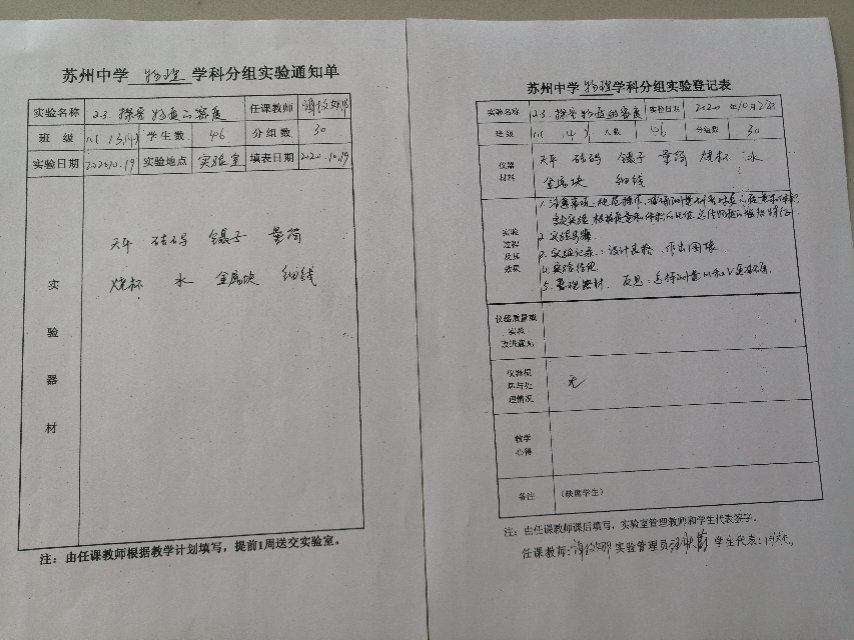 苏州中学 物理 学科分组实验通知单
实验名称 2.3. 探究物质的密度 任课教师
班 级 学生数 46 分组数 30
实验日期 2020.10.19 实验地点 实验室 填表日期 2020.10.19
实验器材
天平 砝码 镊子 量筒
烧杯 水 金属块 细线
注：由任课教师根据教学计划填写，提前1周送交实验室。
苏州中学 物理 学科分组实验登记表
实验名称 2.3. 探究物质的密度 实验日期 2020 年10月
班级 人数 46 分组数 30
仪器材料 天平 砝码 镊子 量筒 烧杯 水
金属块 细线
实验过程及其效果
1. 注意事项，规范操作，
2. 实验步骤
3. 实验记录：设计表格、作出图像
4. 实验结论
5. 整理器材。
仪器质量或实验改进意见
仪器损坏与处理情况 无
教学心得
备注 （缺席学生）
注：由任课教师课后填写，实验室管理教师和学生代表签字。
任课教师: 实验管理员 学生代表: